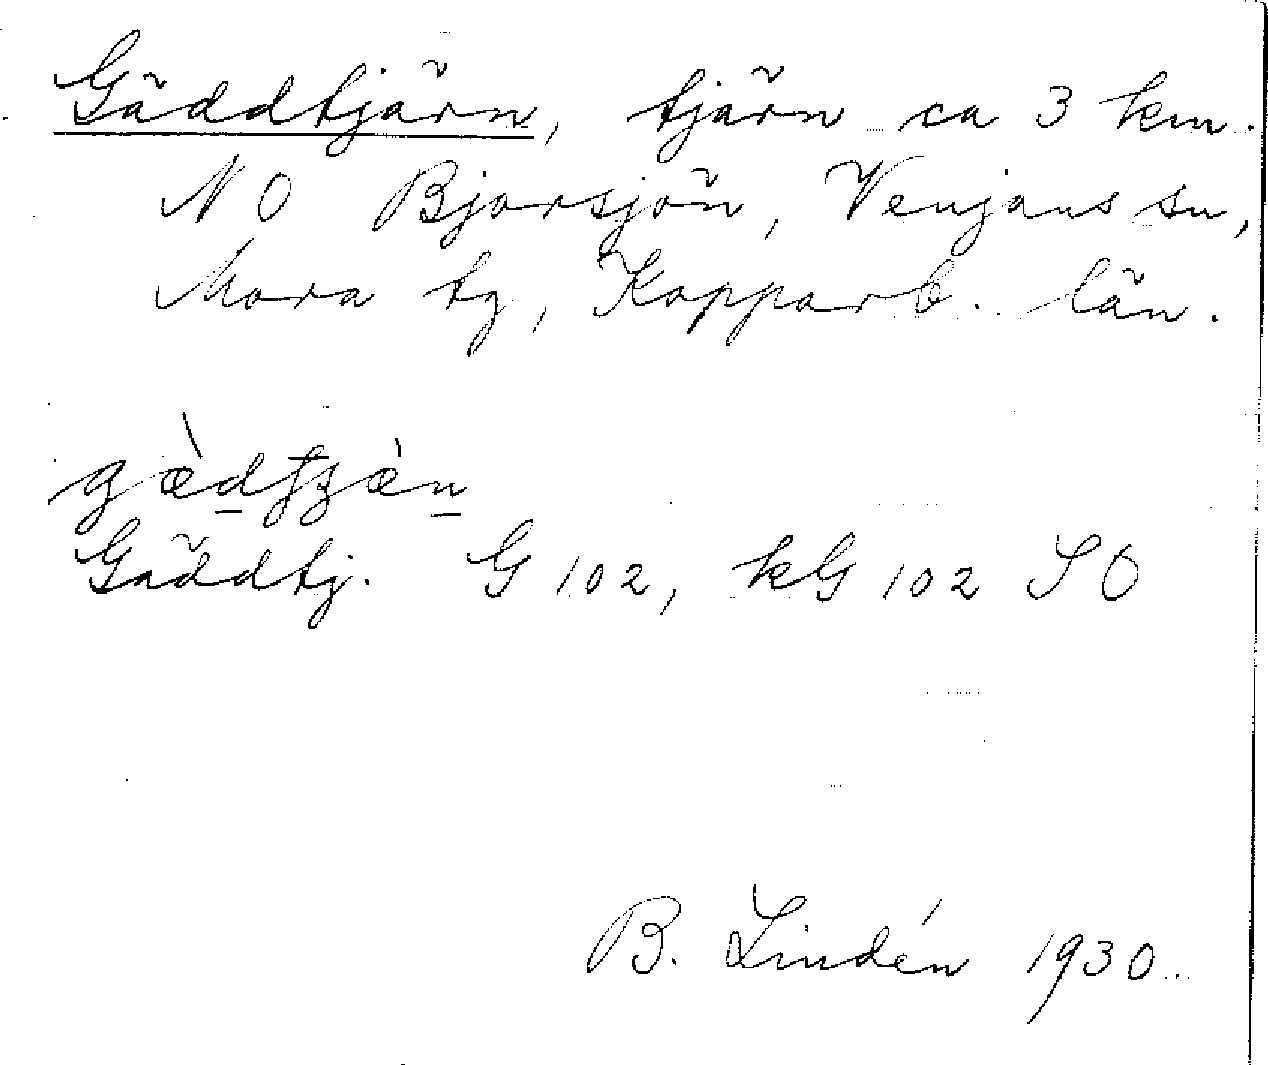 Gäddtjärn, tjärn ca 3 km.
NO Bjorsjön, Venjans sn,
Mora tg, Kopparb. län.
gæ̀dtʒæ̀n
Gäddtj. G 102, kG 102 SO
B. Lindén 1930